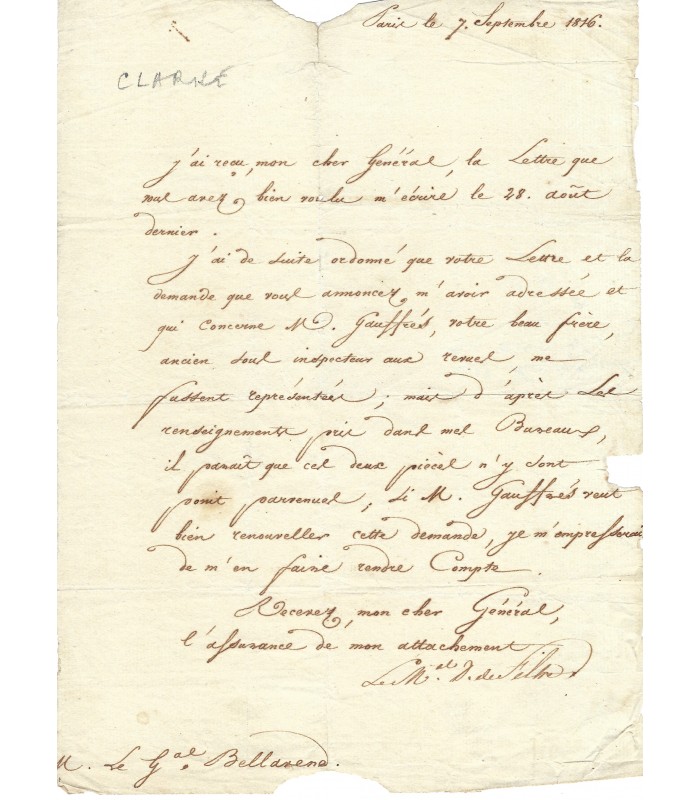 Paris le 7. Septembre 1816.
CLARKE
j'ai reçu, mon cher Général, la Lettre que
vous avez bien voulu m'écrire le 28. août
dernier.
j'ai de suite ordonné que votre Lettre et la
demande que vous annoncez m'avoir adressée et
qui concerne M. Gauffrés, votre beau frère,
ancien sous inspecteur aux revues, me
fussent représentées; mais d'après les
renseignements pris dans mes Bureaux,
il paraît que ces deux pièces n'y sont
point parvenues; si M. Gauffrés veut
bien renouveller cette demande, je m'empresserai
de m'en faire rendre Compte.
Recevez, mon cher Général,
l'assurance de mon attachement
Le Mal D. de Feltre
M. Le Gal. Bellavene.